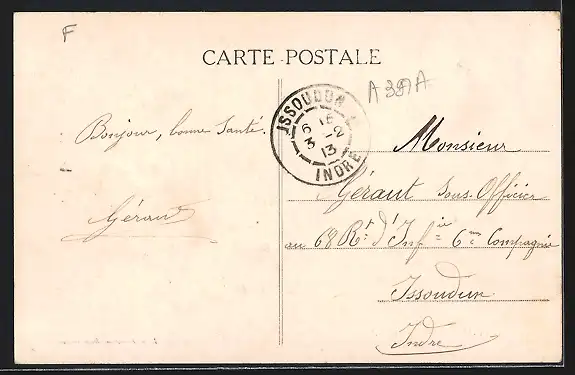 F
CARTE POSTALE
A 387A
ISSOUDUN
6 15
3 -2
13
INDRE
Bonjour, bonne Santé.
Géraut
Monsieur
Géraut Sous-Officier
au 68 Rt d'Infie 6me Compagnie
Issoudun
Indre